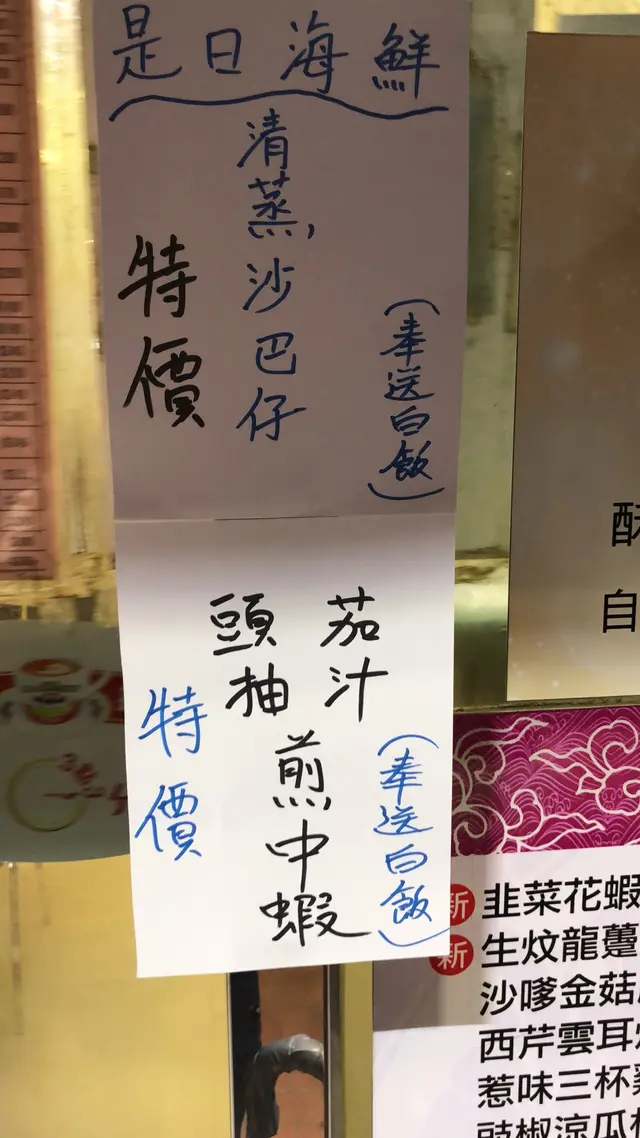 是日海鮮
清蒸沙巴仔
(奉送白飯)
特價
茄汁
頭抽
煎中蝦
(奉送白飯)
特價
酥
自
新 韭菜花蝦
新 生炆龍躉
沙嗲金菇
西芹雲耳
惹味三杯
豉椒涼瓜